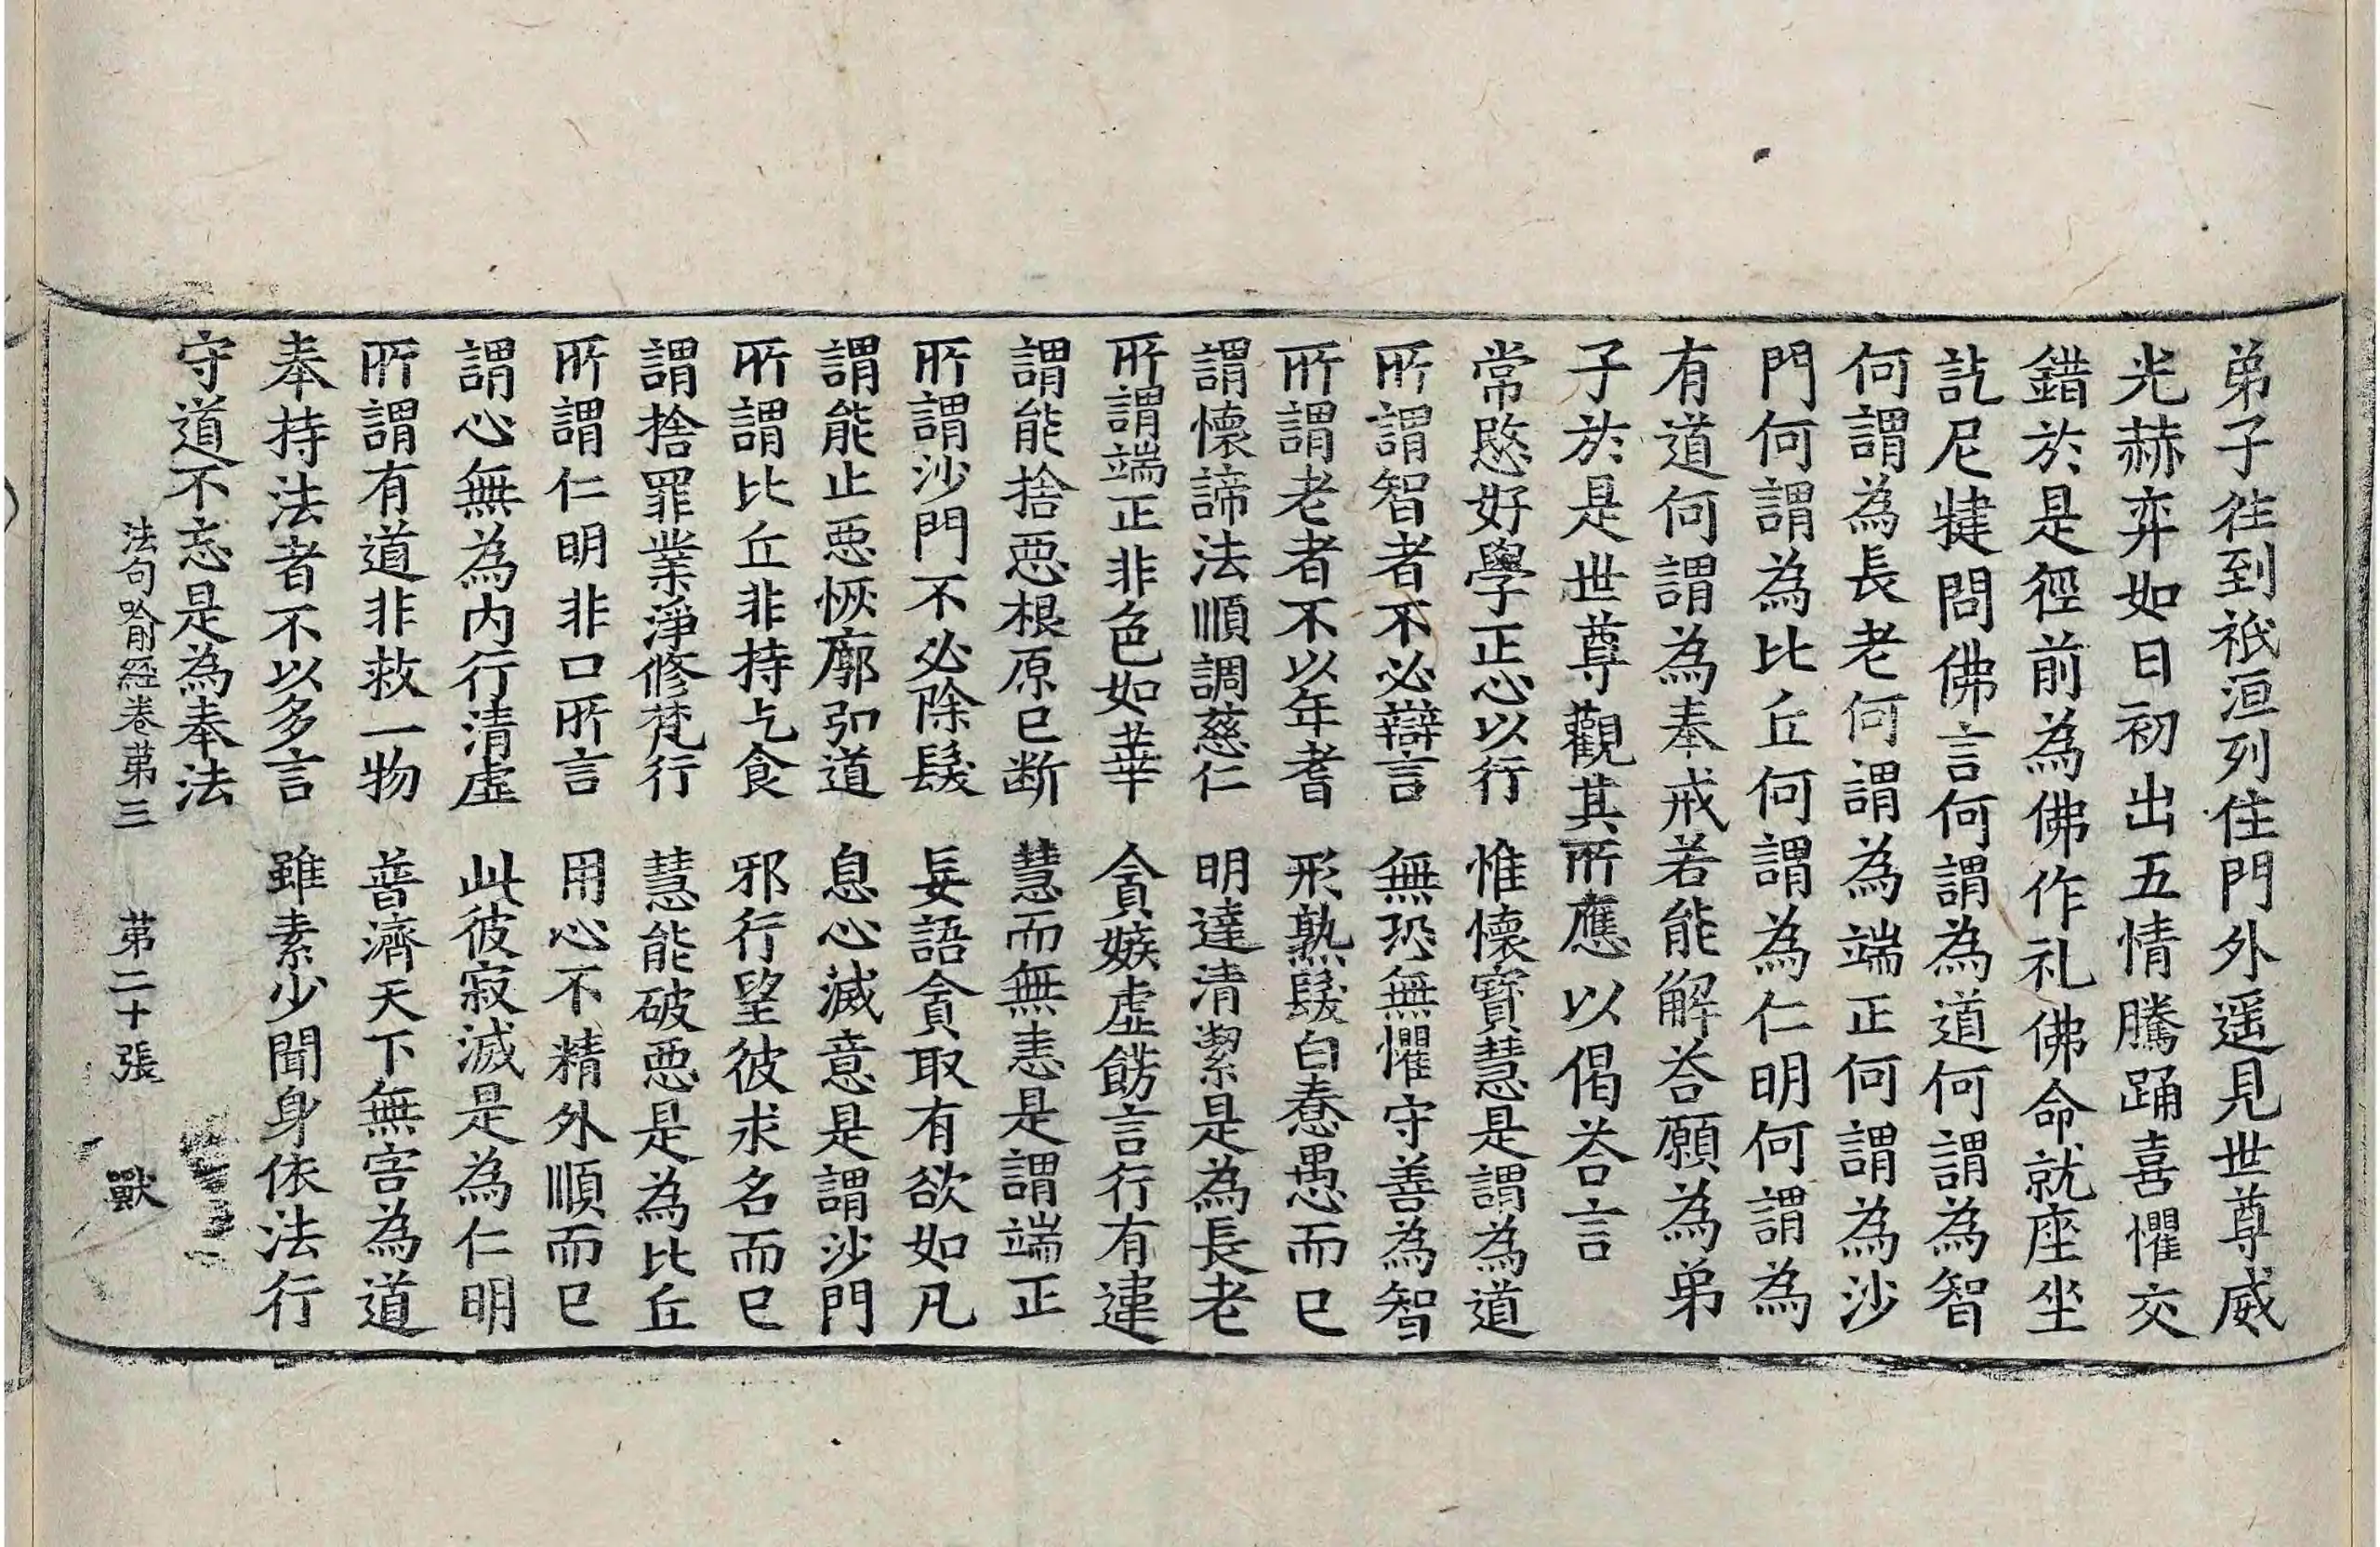 弟子往到祇洹列住門外遥見世尊威
光赫弈如日初出五情騰踊喜懼交
錯於是徑前為佛作礼佛命就座坐
訖尼揵問佛言何謂為道何謂為智
何謂為長老何謂為端正何謂為沙
門何謂為比丘何謂為仁明何謂為
有道何謂為奉戒若能解荅願為弟
子於是世尊觀其所應以偈荅言
常愍好學正心以行　惟懷寶慧是謂為道
所謂智者不必辯言　無恐無懼守善為智
所謂老者不以年耆　形熟髮白惷愚而已
謂懷諦法順調慈仁　明達清絜是為長老
所謂端正非色如華　貪嫉虛餝言行有違
謂能捨惡根原已断　慧而無恚是謂端正
所謂沙門不必除髮　妄語貪取有欲如凡
謂能止惡恢廓弘道　息心滅意是謂沙門
所謂比丘非持乞食　邪行望彼求名而已
謂捨罪業淨修梵行　慧能破惡是為比丘
所謂仁明非口所言　用心不精外順而已
謂心無為内行清虛　此彼寂滅是為仁明
所謂有道非救一物　普濟天下無害為道
奉持法者不以多言　雖素少聞身依法行
守道不忘是為奉法
法句喻經卷第三　第二十張　獸